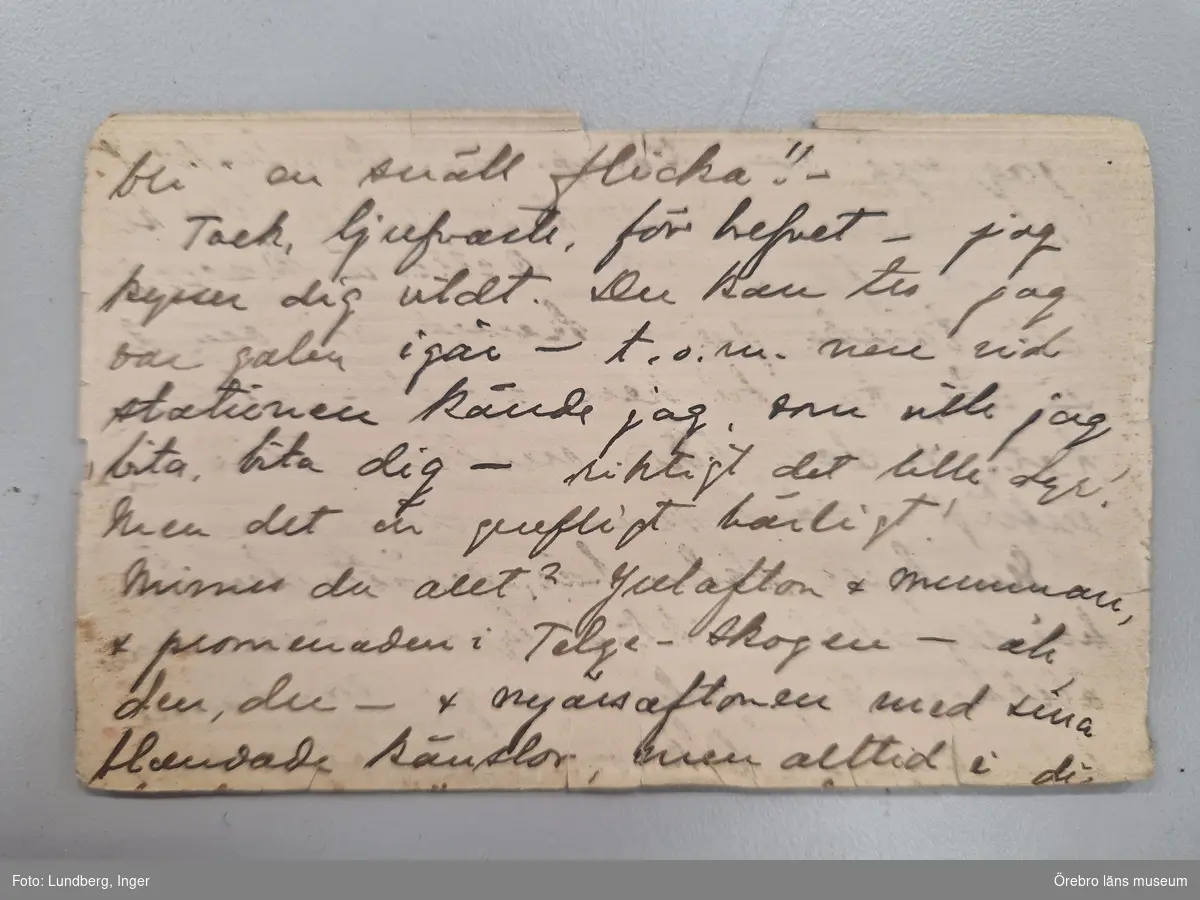 bli" en snäll flicka!! –
Tack, ljufvaste, för brefvet – jag
kysser dig vildt. Du kan tro jag
var galen igår – t.o.m. nere vid
stationen kände jag, som ville jag
bita, bita dig – riktigt det lilla djur!
Men det är grufligt härligt!
Minnes du allt? Julafton & mumman,
& promenaden i Telge-skogen – åh,
du, du – & nyårsaftonen med sina
blandade känslor, men alltid i
Foto: Lundberg, Inger
Örebro läns museum